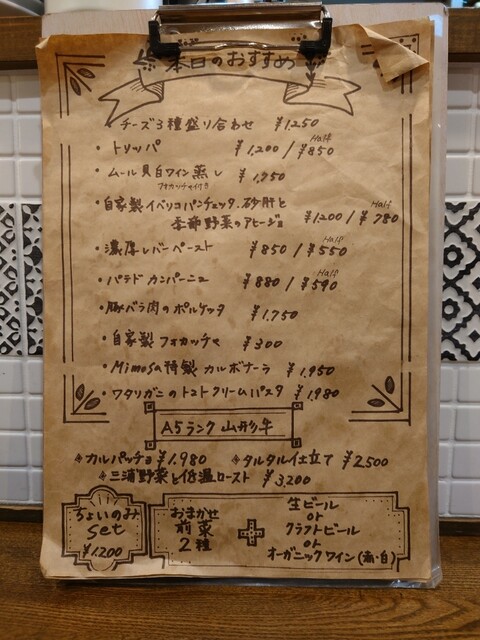 本日のおすすめ
・チーズ3種盛り合わせ ¥1,250
・トリッパ ¥1,200 / Half ¥850
・ムール貝白ワイン蒸し ¥1,950
フォカッチャ付き
・自家製イベリコパンチェッタ、砂肝と
季節野菜のアヒージョ ¥1,200 / Half ¥780
・濃厚レバーペースト ¥850 / Half ¥550
・パテド カンパーニュ ¥880 / Half ¥590
・豚バラ肉のポルケッタ ¥1,750
・自家製フォカッチャ ¥300
・Mimosa特製 カルボナーラ ¥1,950
・ワタリガニのトマトクリームパスタ ¥1,980
A5ランク 山形牛
※カルパッチョ ¥1,980 ※タルタル仕立て ¥2,500
※三浦野菜と低温ロースト ¥3,200
ちょいのみ
Set
¥1,200
おまかせ
前菜
2種
+
生ビール
or
クラフトビール
or
オーガニックワイン(赤・白)